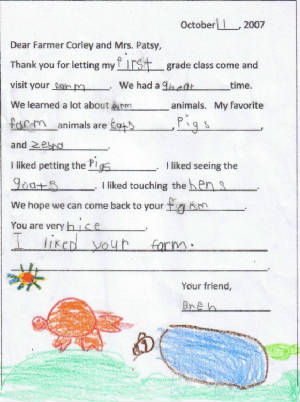 October 11, 2007
Dear Farmer Corley and Mrs. Patsy,
Thank you for letting my first grade class come and
visit your farm. We had a great time.
We learned a lot about farm animals. My favorite
farm animals are cats, Pigs,
and
I liked petting the Pigs. I liked seeing the
goats. I liked touching the hens.
We hope we can come back to your
You are very nice.
I liked your farm.
Your friend,
Bren